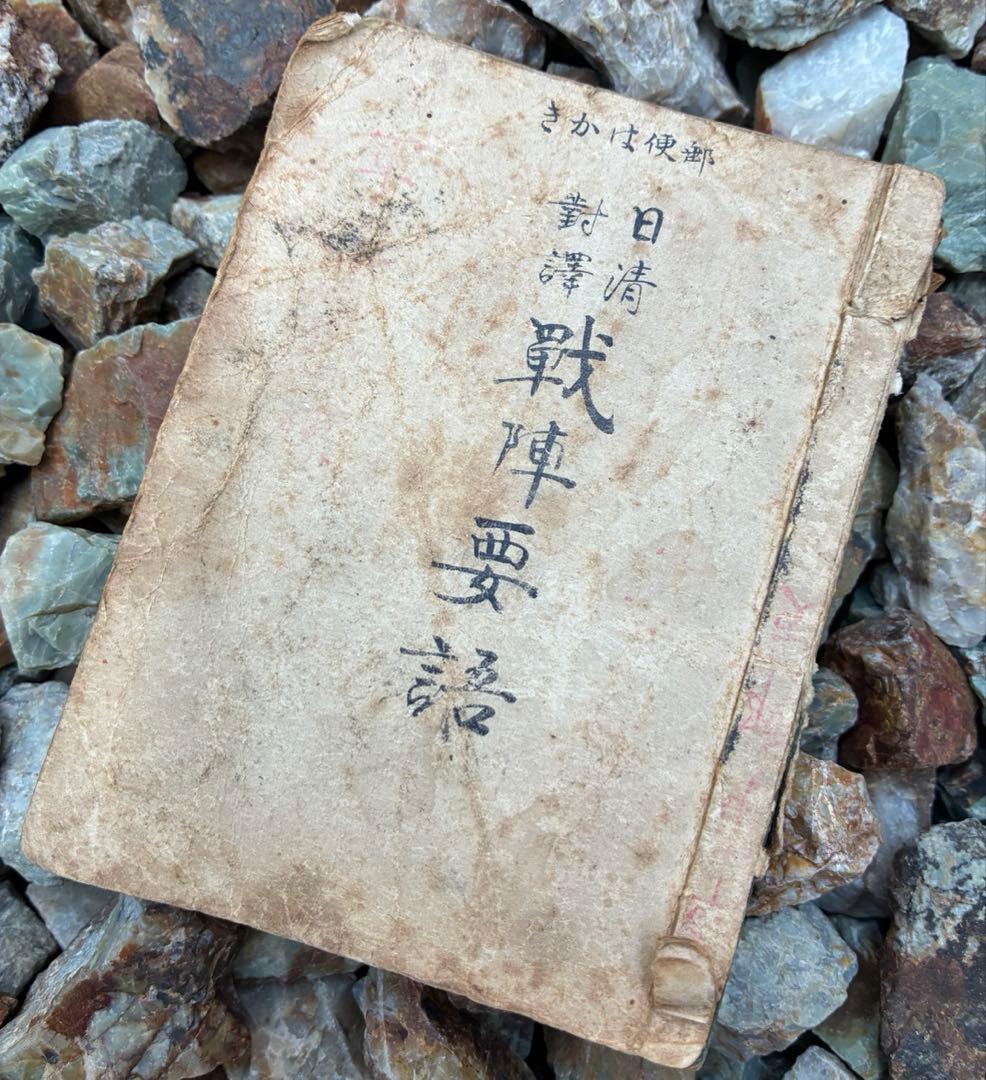 郵便はかき
日清
對譯
戰陣要語